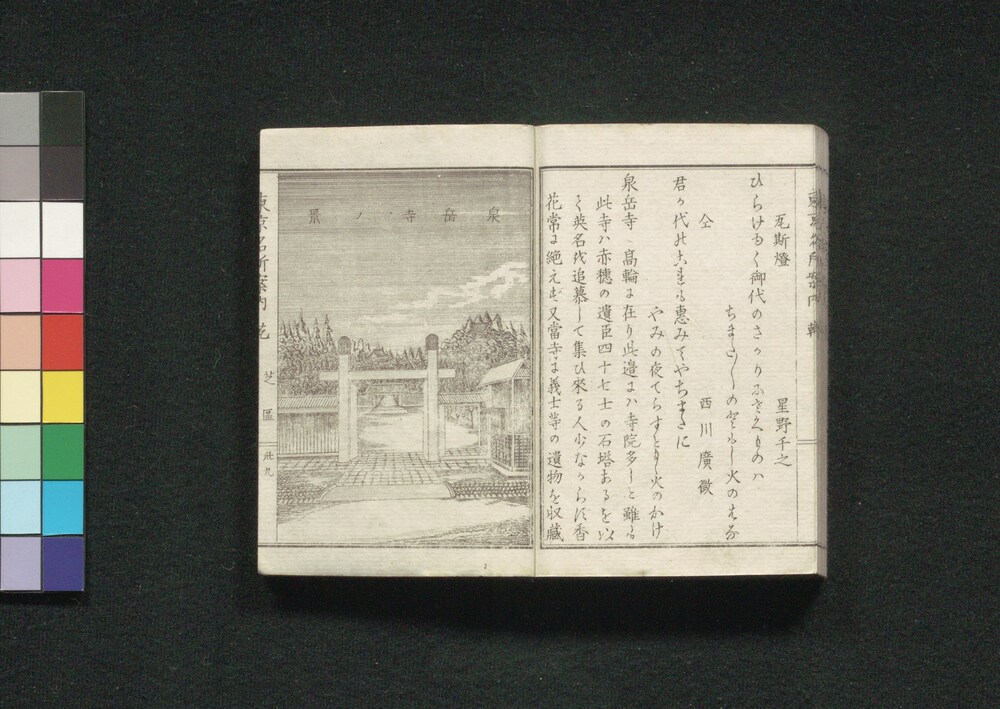 瓦斯燈
星野千之
ひらけゆく御代のさかりにさくものハ
ちまた〳〵のともし火のはな
仝
西川廣徴
君か代の
惠みやちまたに
やみの夜てらすともし火のかけ
泉岳寺、髙輪に在り此邉にハ寺院多しと雖も
此寺ハ赤穗の遺臣四十七士の石塔あるを以
て英名を追慕して集ひ來る人少なからす香
花常に絶えす又當寺に義士等の遺物を収藏
泉岳寺ノ景
東京名所案内
芝區
卅九